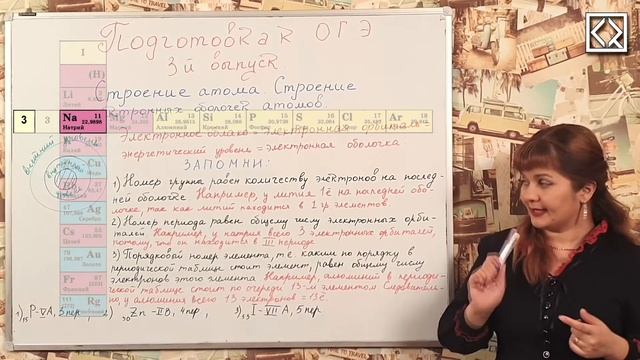 Подготовка к ОГЭ
3й выпуск.
Строение атома. Строение
электронных оболочек атомов.
3 3 Na 11 22.9898 Натрий Mg Al Si P S Cl Ar
Электронное облако = электронная орбиталь
энергетический уровень = электронная оболочка
ЗАПОМНИ:
1) Номер группы равен количеству электронов на послед-
ней оболочке Например, у лития 1ē на последней обо-
лочке, так как литий находится в 1 гр элементов
2) Номер периода равен общему числу электронных орби-
талей Например, у натрия всего 3 электронных орбиталей,
потому, что он находится в III периоде
3) Порядковый номер элемента, т.е. каким по порядку в
периодической таблице стоит элемент, равен общему числу
электронов этого элемента Например, алюминий в периоди-
ческой таблице стоит по очереди 13-м элементом Следователь-
но, у алюминия всего 13 электронов = 13ē.
1) 15 P - VA, 3 пер, 2) 30 Zn - II B, 4 пер, 3) 53 I - VII A, 5 пер.
I
(H)
Cu
Ag
Серебро
Cs
Цезий
Au
Золото
Fr
Франций
Rg